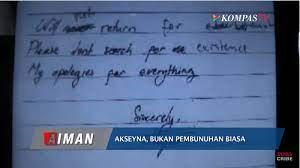 KOMPASTV
Will return for
Please dont search for me existence
My apologies for everything
Sincerely,
AIMAN
AKSEYNA, BUKAN PEMBUNUHAN BIASA
SUBSCRIBE